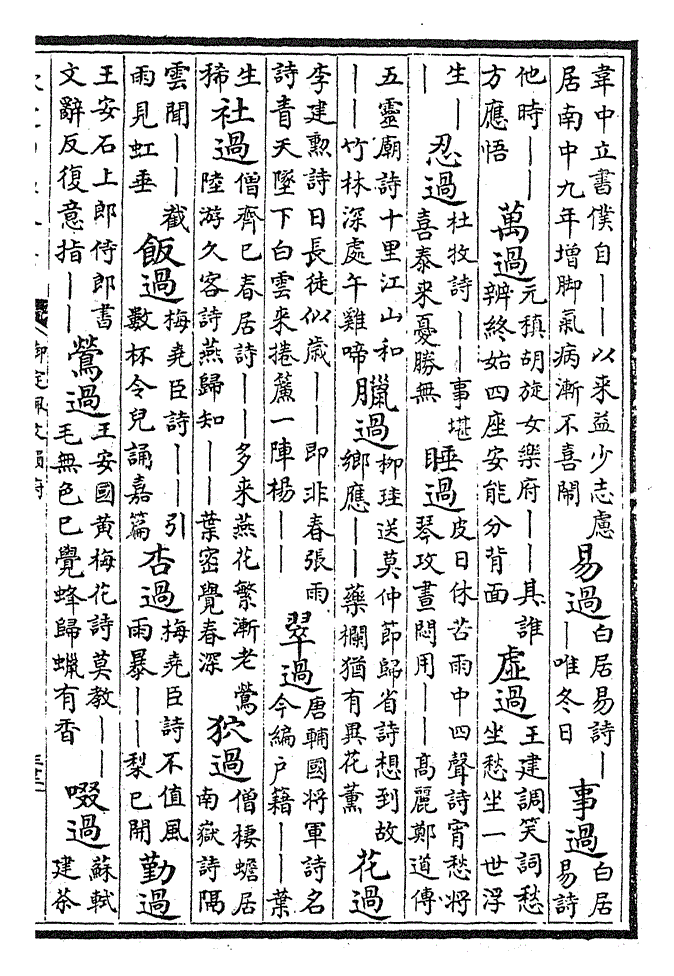 韋中立書僕自||以来益少志慮
居南中九年增脚氣病漸不喜鬧
易過
白居易詩|
|唯冬日
事過
白居
易詩
他時||
方應悟
萬過
元稹胡旋女樂府||其誰
辨終始四座安能分背面
虛過
王建調笑詞愁
坐愁坐一世浮
生|
|
忍過
杜牧詩||事堪
喜泰来憂勝無
睡過
皮日休苦雨中四聲詩宵愁將
琴攻晝悶用||高麗鄭道傳
五靈廟詩十里江山和
||竹林深處午雞啼
臘過
柳珪送莫仲節歸省詩想到故
鄉應||藥欄猶有異花薰
花過
李建勲詩日長徒似歲||即非春張雨
詩青天墜下白雲来捲簾一陣楊||
翠過
唐輔國將軍詩名
今編户籍||葉
生
稀
社過
僧齊已春居詩||多来燕花繁漸老鶯
陸游久客詩燕歸知||葉密覺春深
狖過
僧棲蟾居
南嶽詩隔
雲聞||截
雨見虹垂
飯過
梅堯臣詩||引
數杯令兒誦嘉篇
杏過
梅堯臣詩不值風
雨暴||梨已開
勤過
王安石上郎侍郎書
文辭反復意指||
鶯過
王安國黄梅花詩莫教||
毛無色已覺蜂歸蠟有香
啜過
蘇軾
建茶